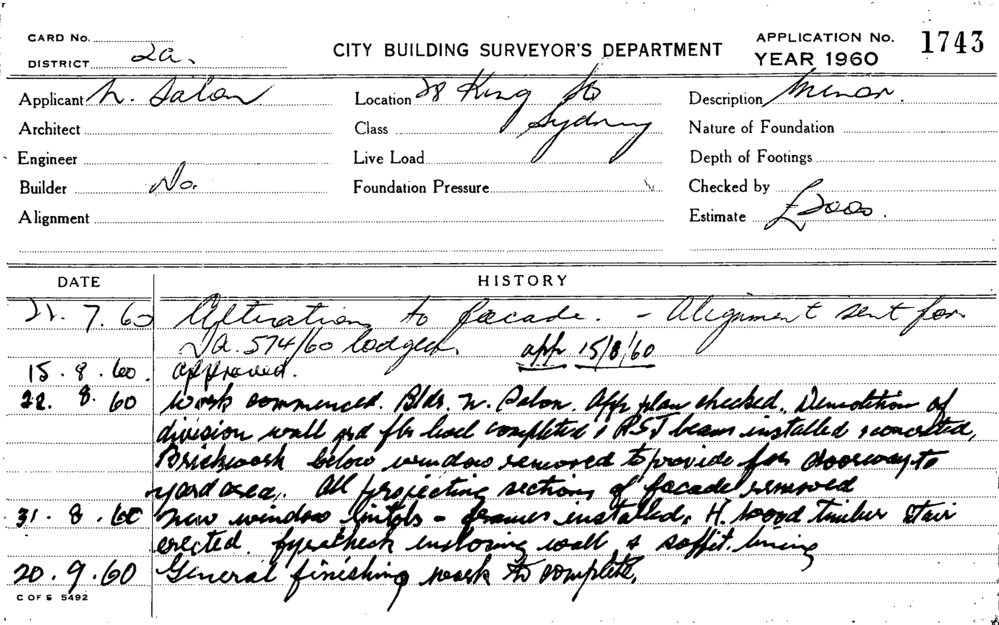 CARD No.
DISTRICT 2a.
CITY BUILDING SURVEYOR'S DEPARTMENT
APPLICATION No. 1743
YEAR 1960
Applicant N. Salon
Location 28 King St
Description Minor.
Architect
Class Sydney
Nature of Foundation
Engineer
Live Load
Depth of Footings
Builder Do.
Foundation Pressure
Checked by
Alignment
Estimate £2000.
DATE HISTORY
21. 7. 60 Alterations to facade. - Alignment sent for
Da. 574/60 lodged app 15/8/60
15. 8. 60. approved.
22. 8. 60 Work commenced. Bldr. N. Salon. App plan checked. Demolition of
division wall grd flr level completed, RSJ beam installed & concreted,
Brickwork below window removed to provide for doorway to
yard area. All projecting sections of facade removed
31. 8. 60 New window lintols - frames installed. H. wood timber stair
erected. fyrecheck enclosing wall & soffit lining
20. 9. 60 General finishing work to complete.
C OF S 5492